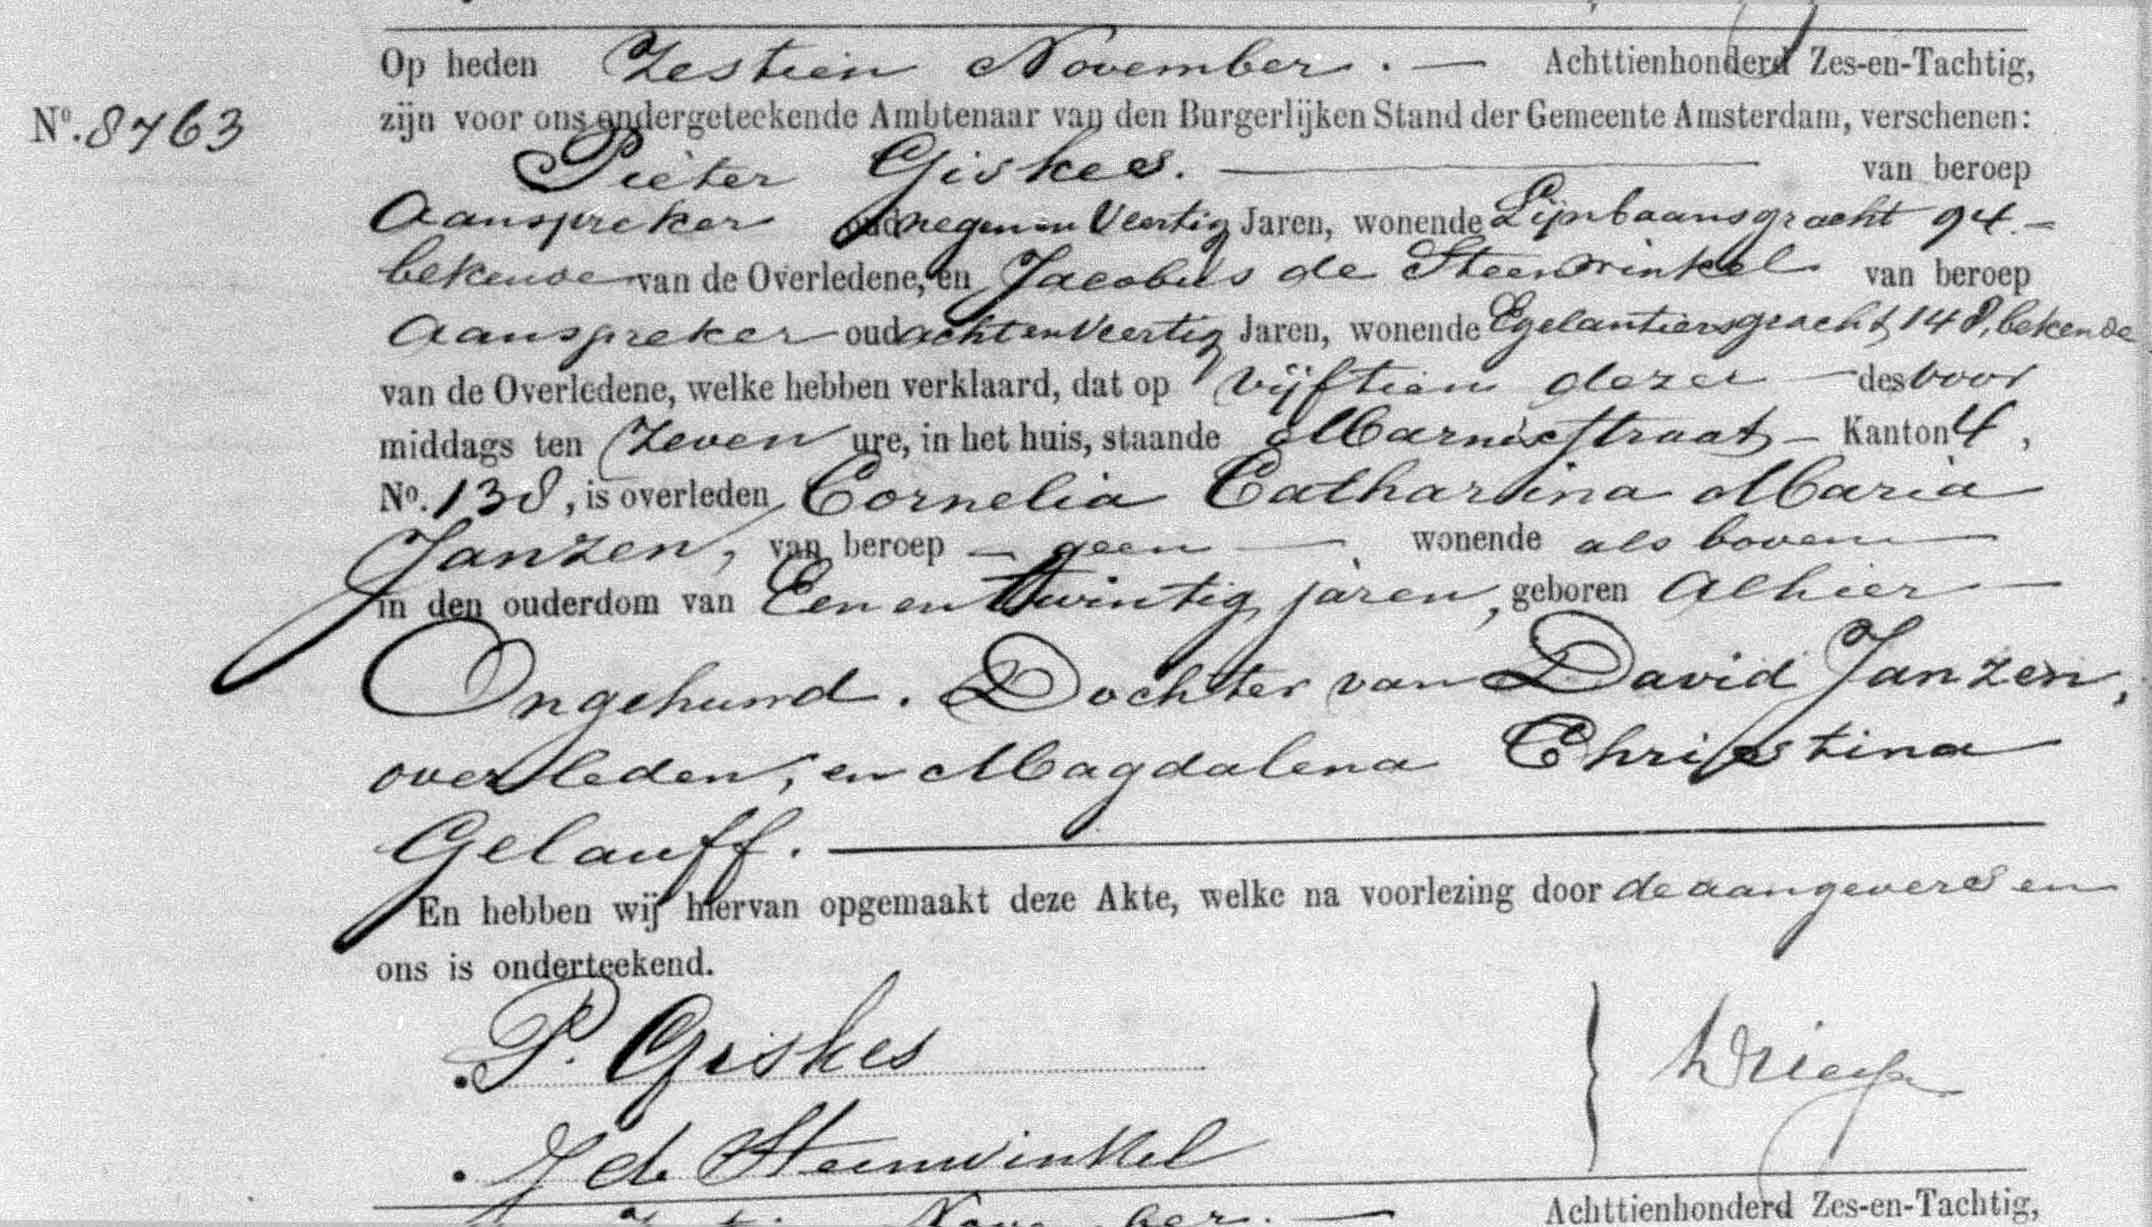 Op heden Zestien November. — Achttienhonderd Zes-en-Tachtig,
No. 8763
zijn voor ons ondergeteekende Ambtenaar van den Burgerlijken Stand der Gemeente Amsterdam, verschenen:
Pieter Giskes. — van beroep
Aanspreker oud negenenVeertig Jaren, wonende Lijnbaansgracht 94. —
bekende van de Overledene, en Jacobus de Steenwinkel van beroep
Aanspreker oud achtenVeertig Jaren, wonende Egelantiersgracht 148, bekende
van de Overledene, welke hebben verklaard, dat op Vijftien dezer — des voor
middags ten Zeven ure, in het huis, staande Marnixstraat — Kanton 4,
No. 138, is overleden Cornelia Catharina Maria
Janzen, van beroep — geen — wonende als boven
in den ouderdom van Een en twintig jaren, geboren Alhier —
Ongehuwd. Dochter van David Janzen,
overleden, en Magdalena Christina
Gelauff. —
En hebben wij hiervan opgemaakt deze Akte, welke na voorlezing door de aangevers en
ons is onderteekend.
P. Giskes
J de Steenwinkel
November. — Achttienhonderd Zes-en-Tachtig,